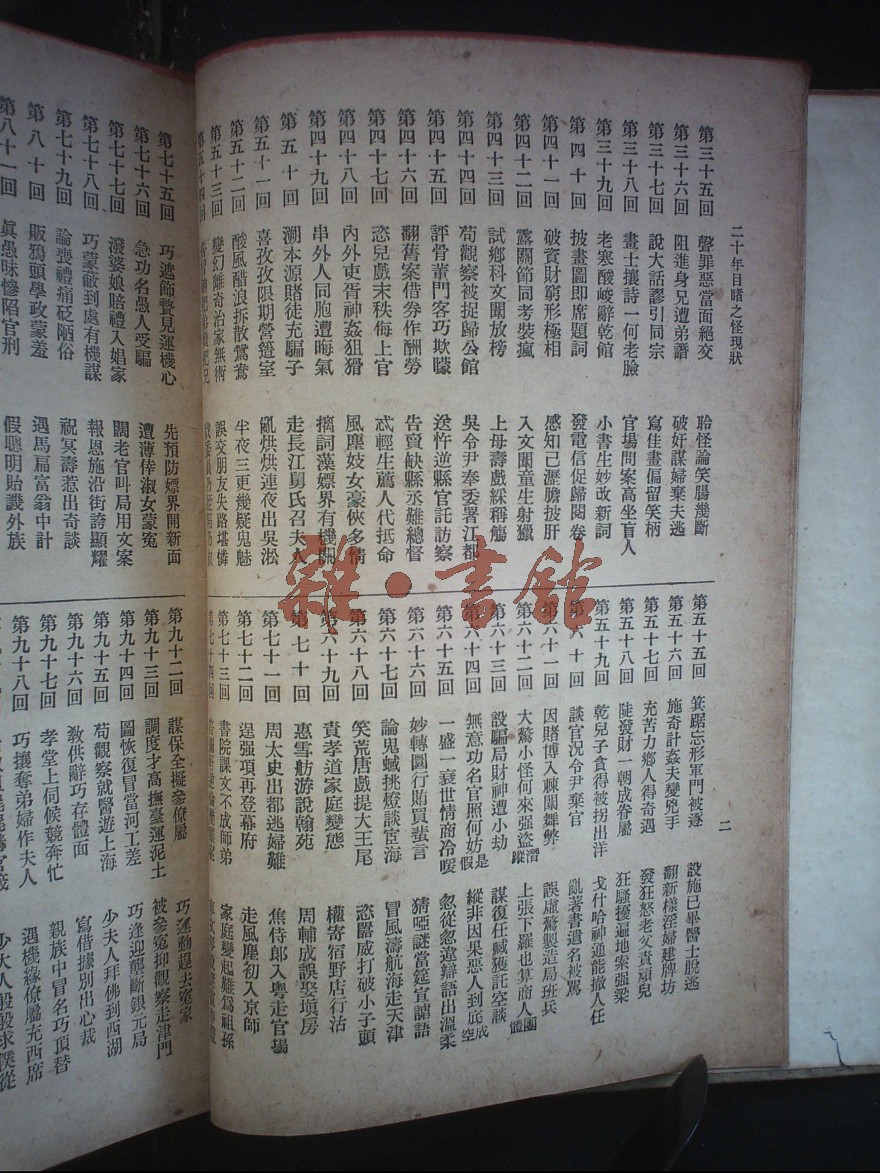 二十年目睹之怪現狀
二
第三十五回 聲罪惡當面絕交 聆怪論笑腸幾斷
第三十六回 阻進身兄遭弟譖 破奸謀婦棄夫逃
第三十七回 說大話謬引同宗 寫佳畫偏留笑柄
第三十八回 畫士攘詩一何老臉 官場問案高坐盲人
第三十九回 老寒酸峻辭乾館 小書生妙改新詞
第四十回 披畫圖即席題詞 發電信促歸閱卷
第四十一回 破資財窮形極相 感知己瀝膽披肝
第四十二回 露關節同考裝瘋 入文闈童生射獵
第四十三回 試鄉科文闈放榜 上母壽戲綵稱觴
第四十四回 苟觀察被捉歸公館 吳令尹奉委署江都
第四十五回 評骨董門客巧欺矇 送忤逆縣官託訪察
第四十六回 翻舊案借券作酬勞 告賣缺縣丞難總督
第四十七回 恣兒戲末秩侮上官 忒輕生薦人代抵命
第四十八回 內外吏胥神姦狙猾 風塵妓女豪俠多情
第四十九回 串外人同胞遭晦氣 擒詞藻嫖界有機關
第五十回 溯本源賭徒充騙子 走長江舅氏召夫人
第五十一回 喜孜孜限期營簉室 亂烘烘連夜出吳淞
第五十二回 酸風醋浪拆散鴛鴦 半夜三更幾疑鬼魅
第五十三回 變幻離奇治家無術 誤交朋友失路堪憐
第五十四回
第五十五回 箕踞忘形軍門被逐 設施已畢醫士脫逃
第五十六回 施奇計姦夫變兇手 翻新樣淫婦建牌坊
第五十七回 充苦力鄉人得奇遇 發狂怒老父責頑兒
第五十八回 陡發財一朝成眷屬 狂騷擾遍地索强梁
第五十九回 乾兒子貪得被拐出洋 戈什哈神通能撤人任
第六十回 談官況令尹棄官 亂著書遺名被罵
第六十一回 因賭博入棘闈舞弊 誤虛驚製造局班兵
第六十二回 大驚小怪何來强盜潛蹤 上張下羅也算商人團體
第六十三回 設騙局財神遭小劫 謀復任臧獲託空談
第六十四回 無意功名官照何妨是假 縱非因果惡人到底成空
第六十五回 一盛一衰世情商冷暖 忽從忽違辯語出溫柔
第六十六回 妙轉圜行賄買蜚言 猜啞謎當筵宣謔語
第六十七回 論鬼蜮挑燈談宦海 冒風濤航海走天津
第六十八回 笑荒唐戲提大王尾 恣囂威打破小子頭
第六十九回 責孝道家庭變態 權寄宿野店行沽
第七十回 惠雪舫游說翰苑 周輔成誤娶填房
第七十一回 周太史出都逃婦難 焦侍郎入粵走官場
第七十二回 逞强項再登幕府 走風塵初入京師
第七十三回 書院課文不成師弟 家庭變起難爲祖孫
第七十四回
第七十五回 巧遮飾贄見運機心 先預防嫖界開新面
第七十六回 急功名愚人受騙 遭薄倖淑女蒙冤
第七十七回 潑婆娘賠禮入娼家 闊老官叫局用文案
第七十八回 巧蒙蔽到處有機謀 報恩施沿街誇顯耀
第七十九回 論喪禮痛砭陋俗 祝冥壽惹出奇談
第八十回 販鴉頭學政蒙羞 遇馬扁富翁中計
第八十一回 眞愚昧慘陷官刑 假聰明貽譏外族
第九十二回 謀保全擬參僚屬 巧運動趕去冤家
第九十三回 調度才高撫臺運泥土 被參冤抑觀察走津門
第九十四回 圖恢復冒當河工差 巧逢迎壟斷銀元局
第九十五回 苟觀察就醫遊上海 少夫人拜佛到西湖
第九十六回 教供辭巧存體面 寫借據別出心裁
第九十七回 孝堂上伺候競奔忙 親族中冒名巧頂替
第九十八回 巧攘奪弟婦作夫人 遇機緣僚屬充西席
雜·書館